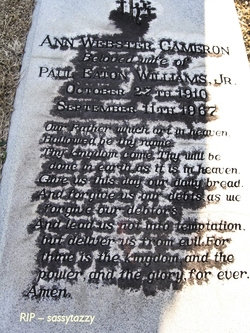 Ann Webster Cameron
Beloved wife of
Paul Eaton Williams, Jr.
October 27th 1910
September 11th 1967
Our Father which art in heaven,
Hallowed be thy name.
Thy kingdom come. Thy will be
done on earth as it is in heaven.
Give us this day our daily bread.
And forgive us our debts, as we
forgive our debtors.
And lead us not into temptation,
but deliver us from evil. For
thine is the kingdom and the
power, and the glory, for ever.
Amen.
RIP ~ sassytazzy